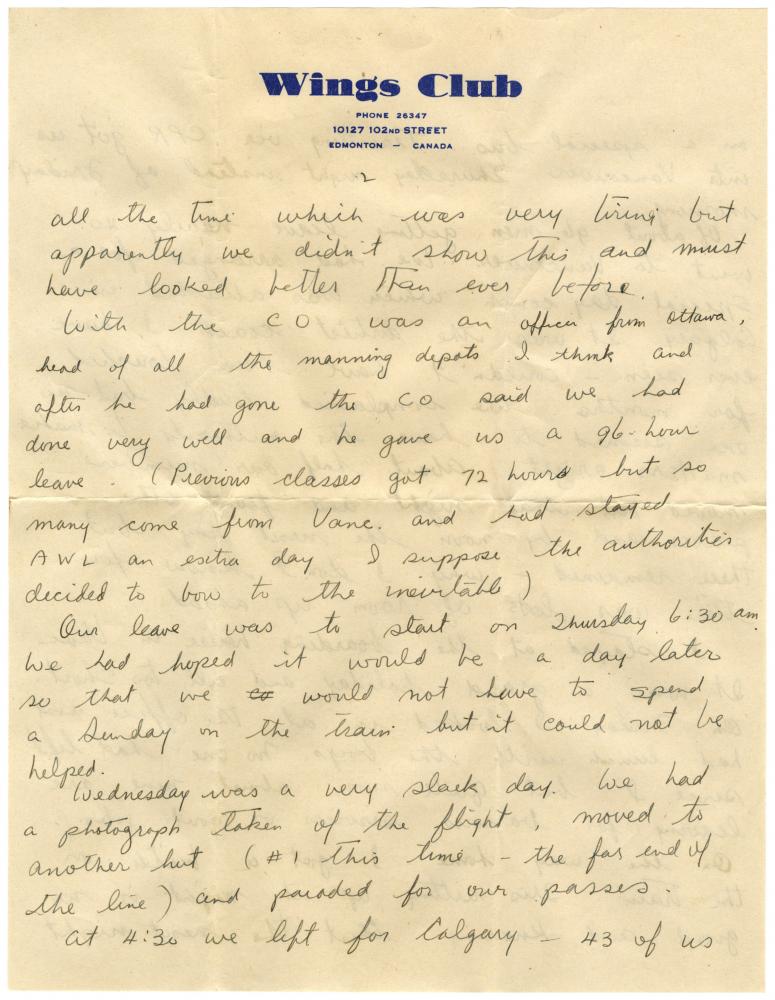 Wings Club
PHONE 26347
10127 102ND STREET
EDMONTON – CANADA
2
all the time which was very tiring but
apparently we didn't show this and must
have looked better than ever before.
With the CO was an officer from Ottawa,
head of all the manning depots I think and
after he had gone the CO said we had
done very well and he gave us a 96-hour
leave. (Previous classes got 72 hours but so
many come from Vanc. and had stayed
AWL an extra day I suppose the authorities
decided to bow to the inevitable)
Our leave was to start on Thursday 6:30 am.
We had hoped it would be a day later
so that we would not have to spend
a Sunday on the train but it could not be
helped.
Wednesday was a very slack day. We had
a photograph taken of the flight, moved to
another hut (#1 this time – the far end of
the line) and paraded for our passes.
At 4:30 we left for Calgary – 43 of us